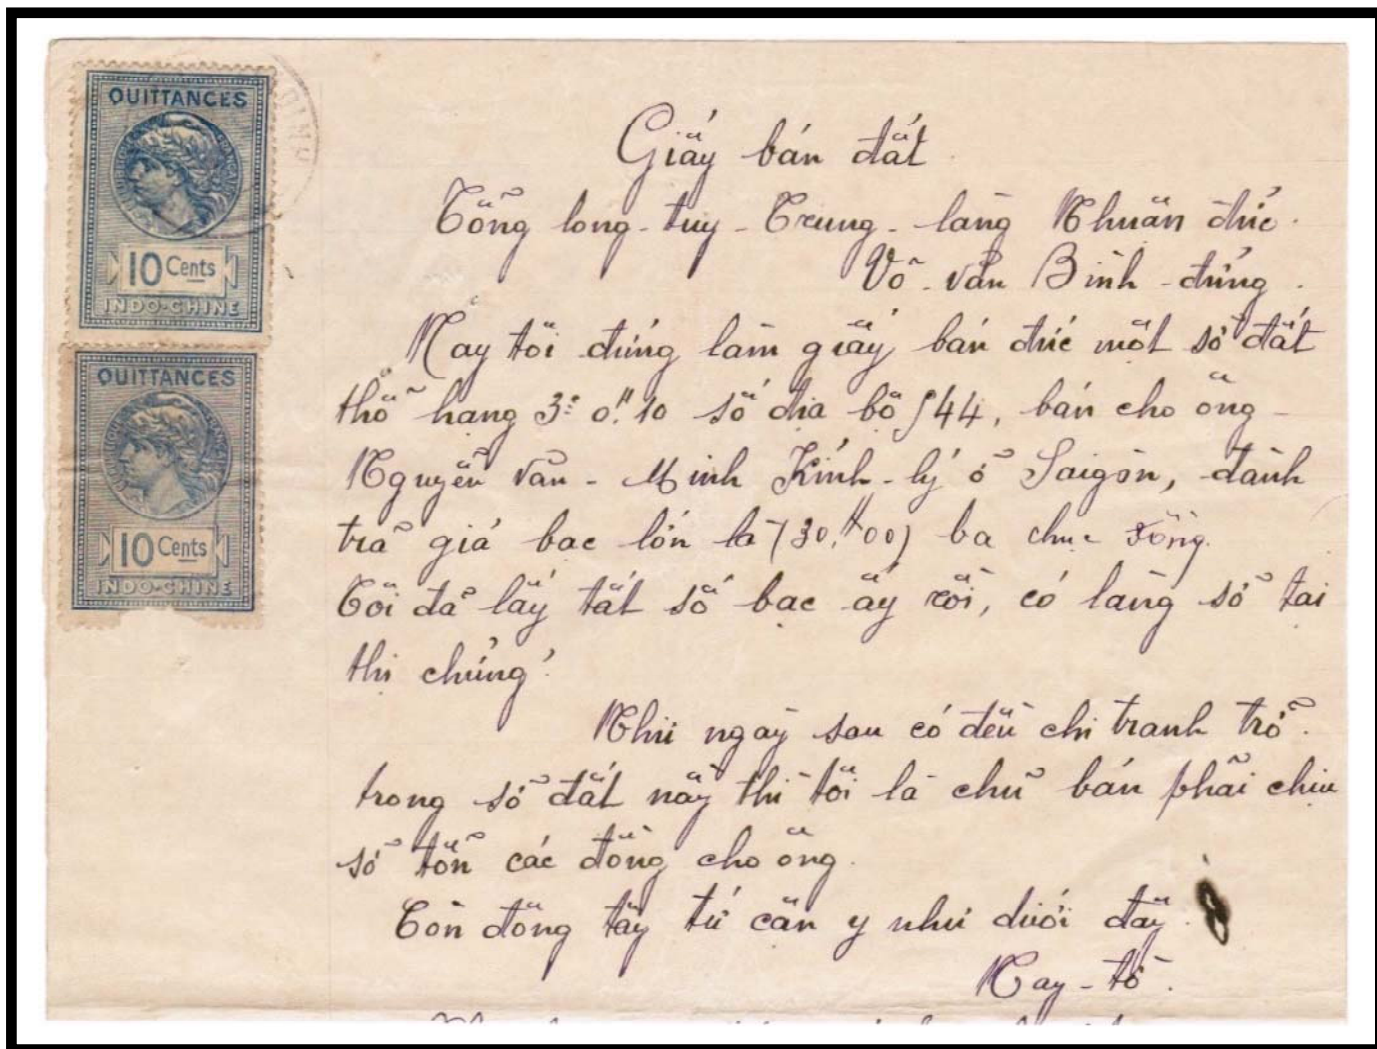 QUITTANCES
10 Cents
INDO-CHINE
QUITTANCES
10 Cents
INDO-CHINE
Giấy bán đất
Tổng long-tuy-Trung-làng Nhuận đức.
Võ-văn Bình-đứng.
Nay tôi đứng làm giấy bán đức một sở đất
thổ hạng 3e 0H10 số địa bộ 544, bán cho ông
Nguyễn văn-Minh Kinh-lý ở Saigòn, đành
trả giá bạc lớn là (30,$00) ba chục đồng.
Tôi đã lấy tất số bạc ấy rồi, có làng sở tại
thị chứng.
Như ngày sau có đều chi tranh trở
trong sở đất nầy thì tôi là chủ bán phải chịu
sở tổn các đồng cho ông.
Còn đông tây tứ cận y như dưới đây.
Nay-tờ.